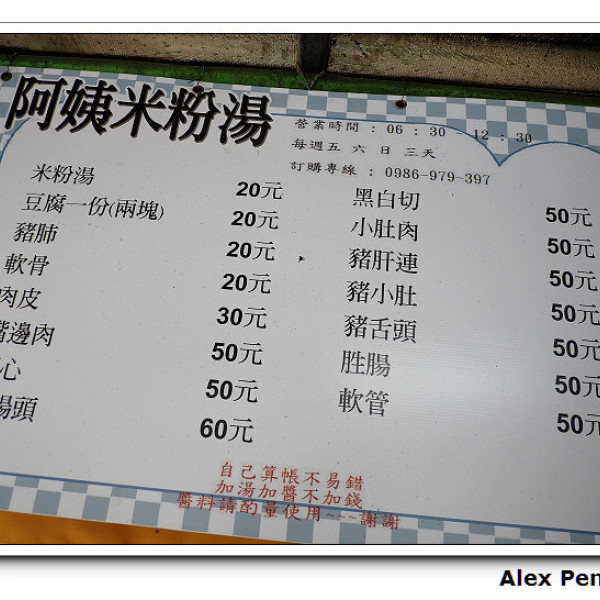 阿姨米粉湯
營業時間：06：30-12：30
每週五 六 日 三天
訂購專線：0986-979-397
米粉湯 20元
豆腐一份(兩塊) 20元
豬肺 20元
軟骨 20元
肉皮 30元
嘴邊肉 50元
心 50元
腸頭 60元
黑白切 50元
小肚肉 50元
豬肝連 50元
豬小肚 50元
豬舌頭 50元
胜腸 50元
軟管 50元
自己算帳不易錯
加湯加醬不加錢
醬料請酌量使用~~~謝謝
Alex Pen